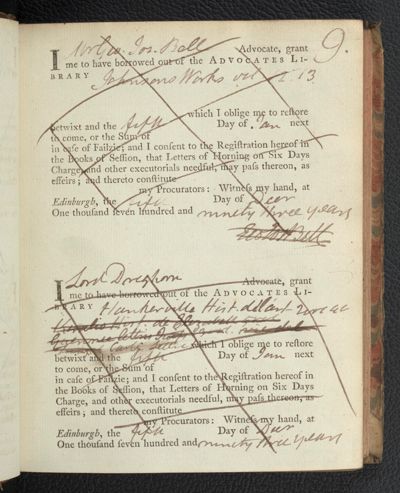 9.
I Mr Geo. Jos. Bell Advocate, grant
me to have borrowed out of the ADVOCATES LI-
BRARY Johnsons Works vol 13
which I oblige me to reſtore
betwixt and the fifth Day of Jan next
to come, or the Sum of
in caſe of Failzie; and I conſent to the Regiſtration hereof in
the Books of Seſſion, that Letters of Horning on Six Days
Charge, and other executorials needful, may paſs thereon, as
effeirs; and thereto conſtitute
my Procurators: Witneſs my hand, at
Edinburgh, the fifth Day of Decr
One thouſand ſeven hundred and ninety three years
Geo Jos Bell
I Lord Dreghorn Advocate, grant
me to have borrowed out of the ADVOCATES LI-
BRARY Hist
which I oblige me to reſtore
betwixt and the fifth Day of Jan next
to come, or the Sum of
in caſe of Failzie; and I conſent to the Regiſtration hereof in
the Books of Seſſion, that Letters of Horning on Six Days
Charge, and other executorials needful, may paſs thereon, as
effeirs; and thereto conſtitute
my Procurators: Witneſs my hand, at
Edinburgh, the fifth Day of Decr
One thouſand ſeven hundred and ninety three years